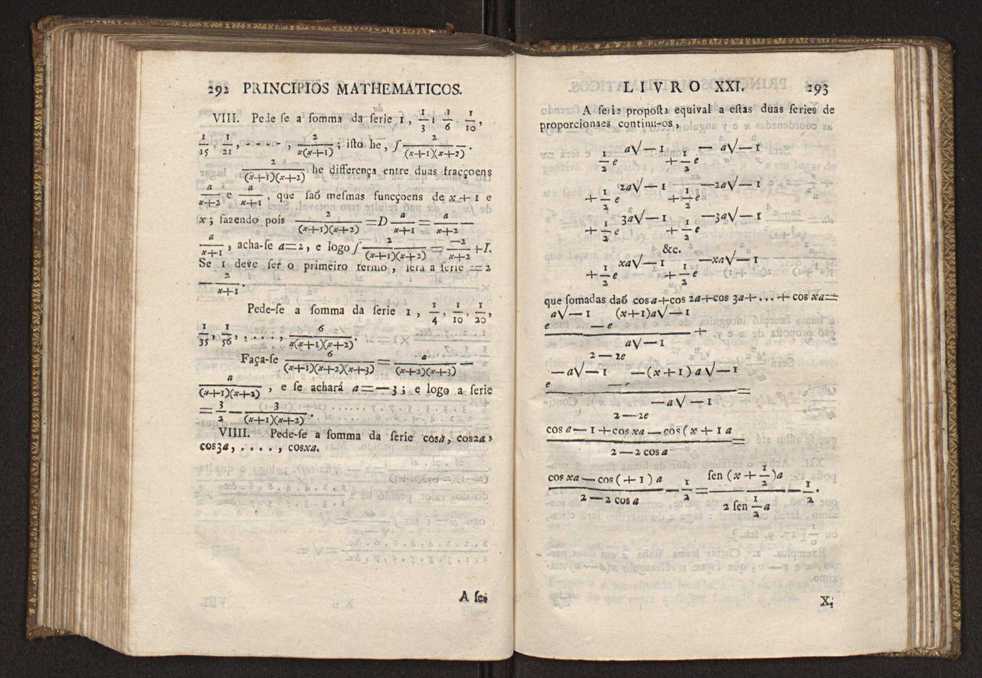 292 PRINCIPIOS MATHEMATICOS.
VIII. Pede se a somma da serie 1, 1/3, 1/6, 1/10,
1/15, 1/21, . . . . ., 2/x(x+1); isto he, ∫ 2/(x+1)(x+2).
2/(x+1)(x+2) he differença entre duas fracçoens
a/x+2 e a/x+1, que saõ mesmas funcçoens de x+1 e
x; fazendo pois 2/(x+1)(x+2) =D a/x+1 = a/x+2 —
a/x+1, acha-se a=2, e logo ∫ 2/(x+1)(x+2) = —2/x+2 +I.
Se 1 deve ser o primeiro termo, será a serie = 2
— 2/x+1.
Pede-se a somma da serie 1, 1/4, 1/10, 1/20,
1/35, 1/56, . . . ., 6/x(x+1)(x+2).
Faça-se 6/(x+1)(x+2)(x+3) = a/(x+2)(x+3) —
a/(x+1)(x+2), e se achará a=—3; e logo a serie
= 3/2 — 3/(x+1)(x+2).
VIIII. Pede-se a somma da serie cosa, cos2a,
cos3a, . . . ., cosxa.
A seɾ
LIVRO XXI. 293
A serie proposta equival a estas duas series de
proporcionaes continuas,
1/2 e a√—1 + 1/2 e — a√—1
+ 1/2 e 2a√—1 + 1/2 e —2a√—1
+ 1/2 e 3a√—1 + 1/2 e —3a√—1
&c.
+ 1/2 e xa√—1 + 1/2 e —xa√—1
que somadas daõ cos a+cos 2a+cos 3a+...+cos xa=
a√—1 (x+1)a√—1
e — e
+
a√—1
2 — 2e
—a√—1 —(x+1) a √—1
e —
=
—a√—1
2 — 2e
cos a—1+cos xa—cos(x+1 a
=
2—2 cos a
cos xa—cos (+1) a / 2—2 cos a — 1/2 = sen (x+1/2)a / 2 sen 1/2 a — 1/2.
X;